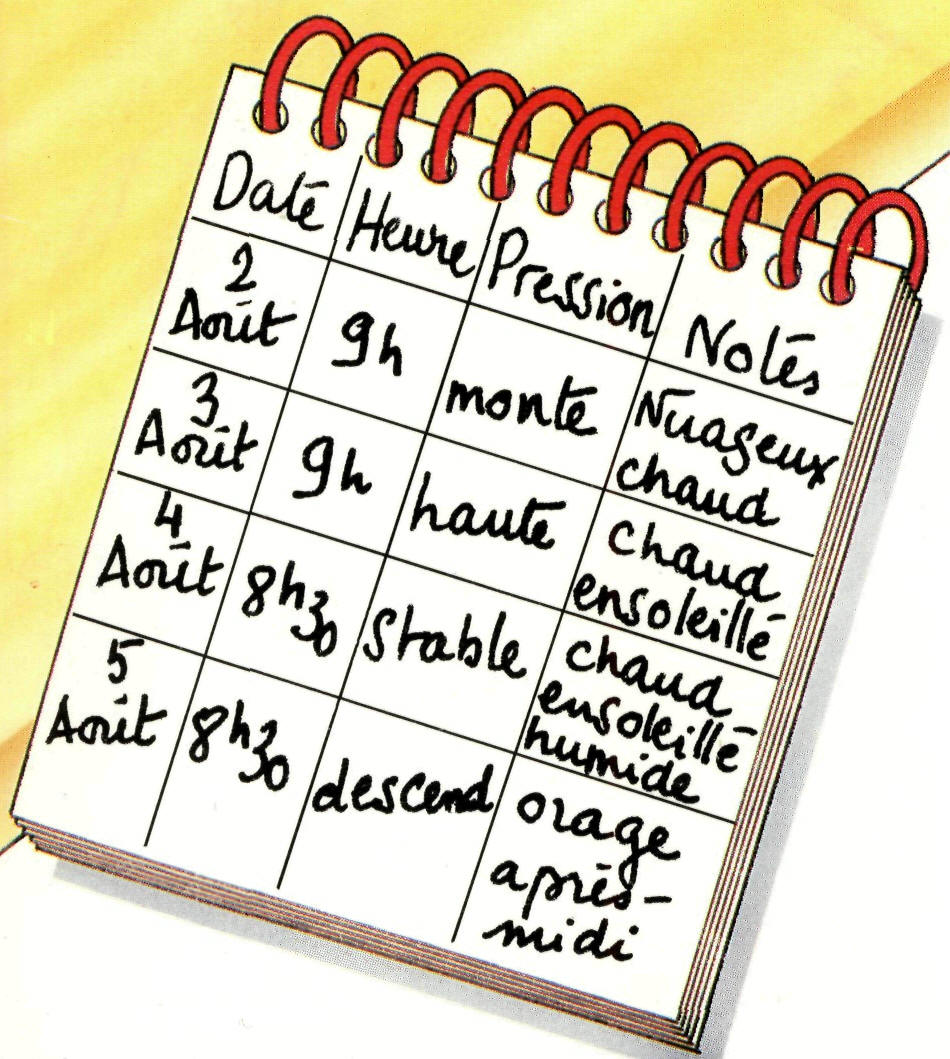 Date Heure Pression Notes
2 Août 9h monte Nuageux chaud
3 Août 9h haute chaud ensoleillé
4 Août 8h30 stable chaud ensoleillé humide
5 Août 8h30 descend orage après-midi